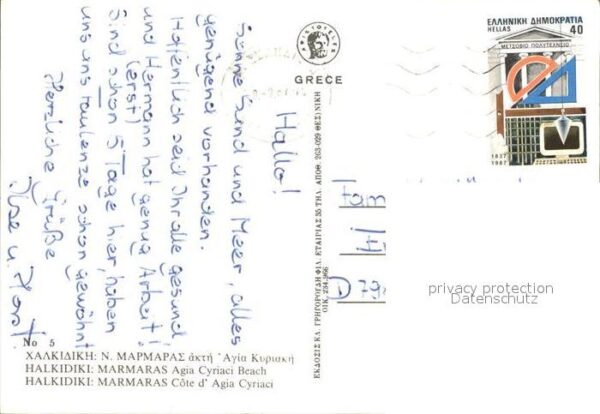 Hallo!
Sonne Sand und Meer, alles
genügend vorhanden.
Hoffentlich seid Ihr alle gesund
und Hermann hat genug Arbeit!
(erst)
Sind schon 5 Tage hier, haben
uns ans faulenze schon gewöhnt
Herzliche Grüße
Ilse u. Horst.
ΑΡΙΣΤΟΤΕΛΗΣ
GRECE
ΕΛΛΗΝΙΚΗ ΔΗΜΟΚΡΑΤΙΑ
HELLAS 40
ΜΕΤΣΟΒΙΟ ΠΟΛΥΤΕΧΝΕΙΟ
1837
1987
Fam
D 79
privacy protection
Datenschutz
ΕΚΔΟΣΙΣ ΚΛ. ΓΡΗΓΟΡΟΓΔΗ ΦΙΛ. ΕΤΑΙΡΙΑΣ 35 ΤΗΛ. ΑΠΟΘ. 263-029 ΘΕΣ/ΝΙΚΗ
ΟΙΚ. 234.966
No 5
ΧΑΛΚΙΔΙΚΗ: Ν. ΜΑΡΜΑΡΑΣ ἀκτή Ἁγία Κυριακή
HALKIDIKI: MARMARAS Agia Cyriaci Beach
HALKIDIKI: MARMARAS Côte d' Agia Cyriaci